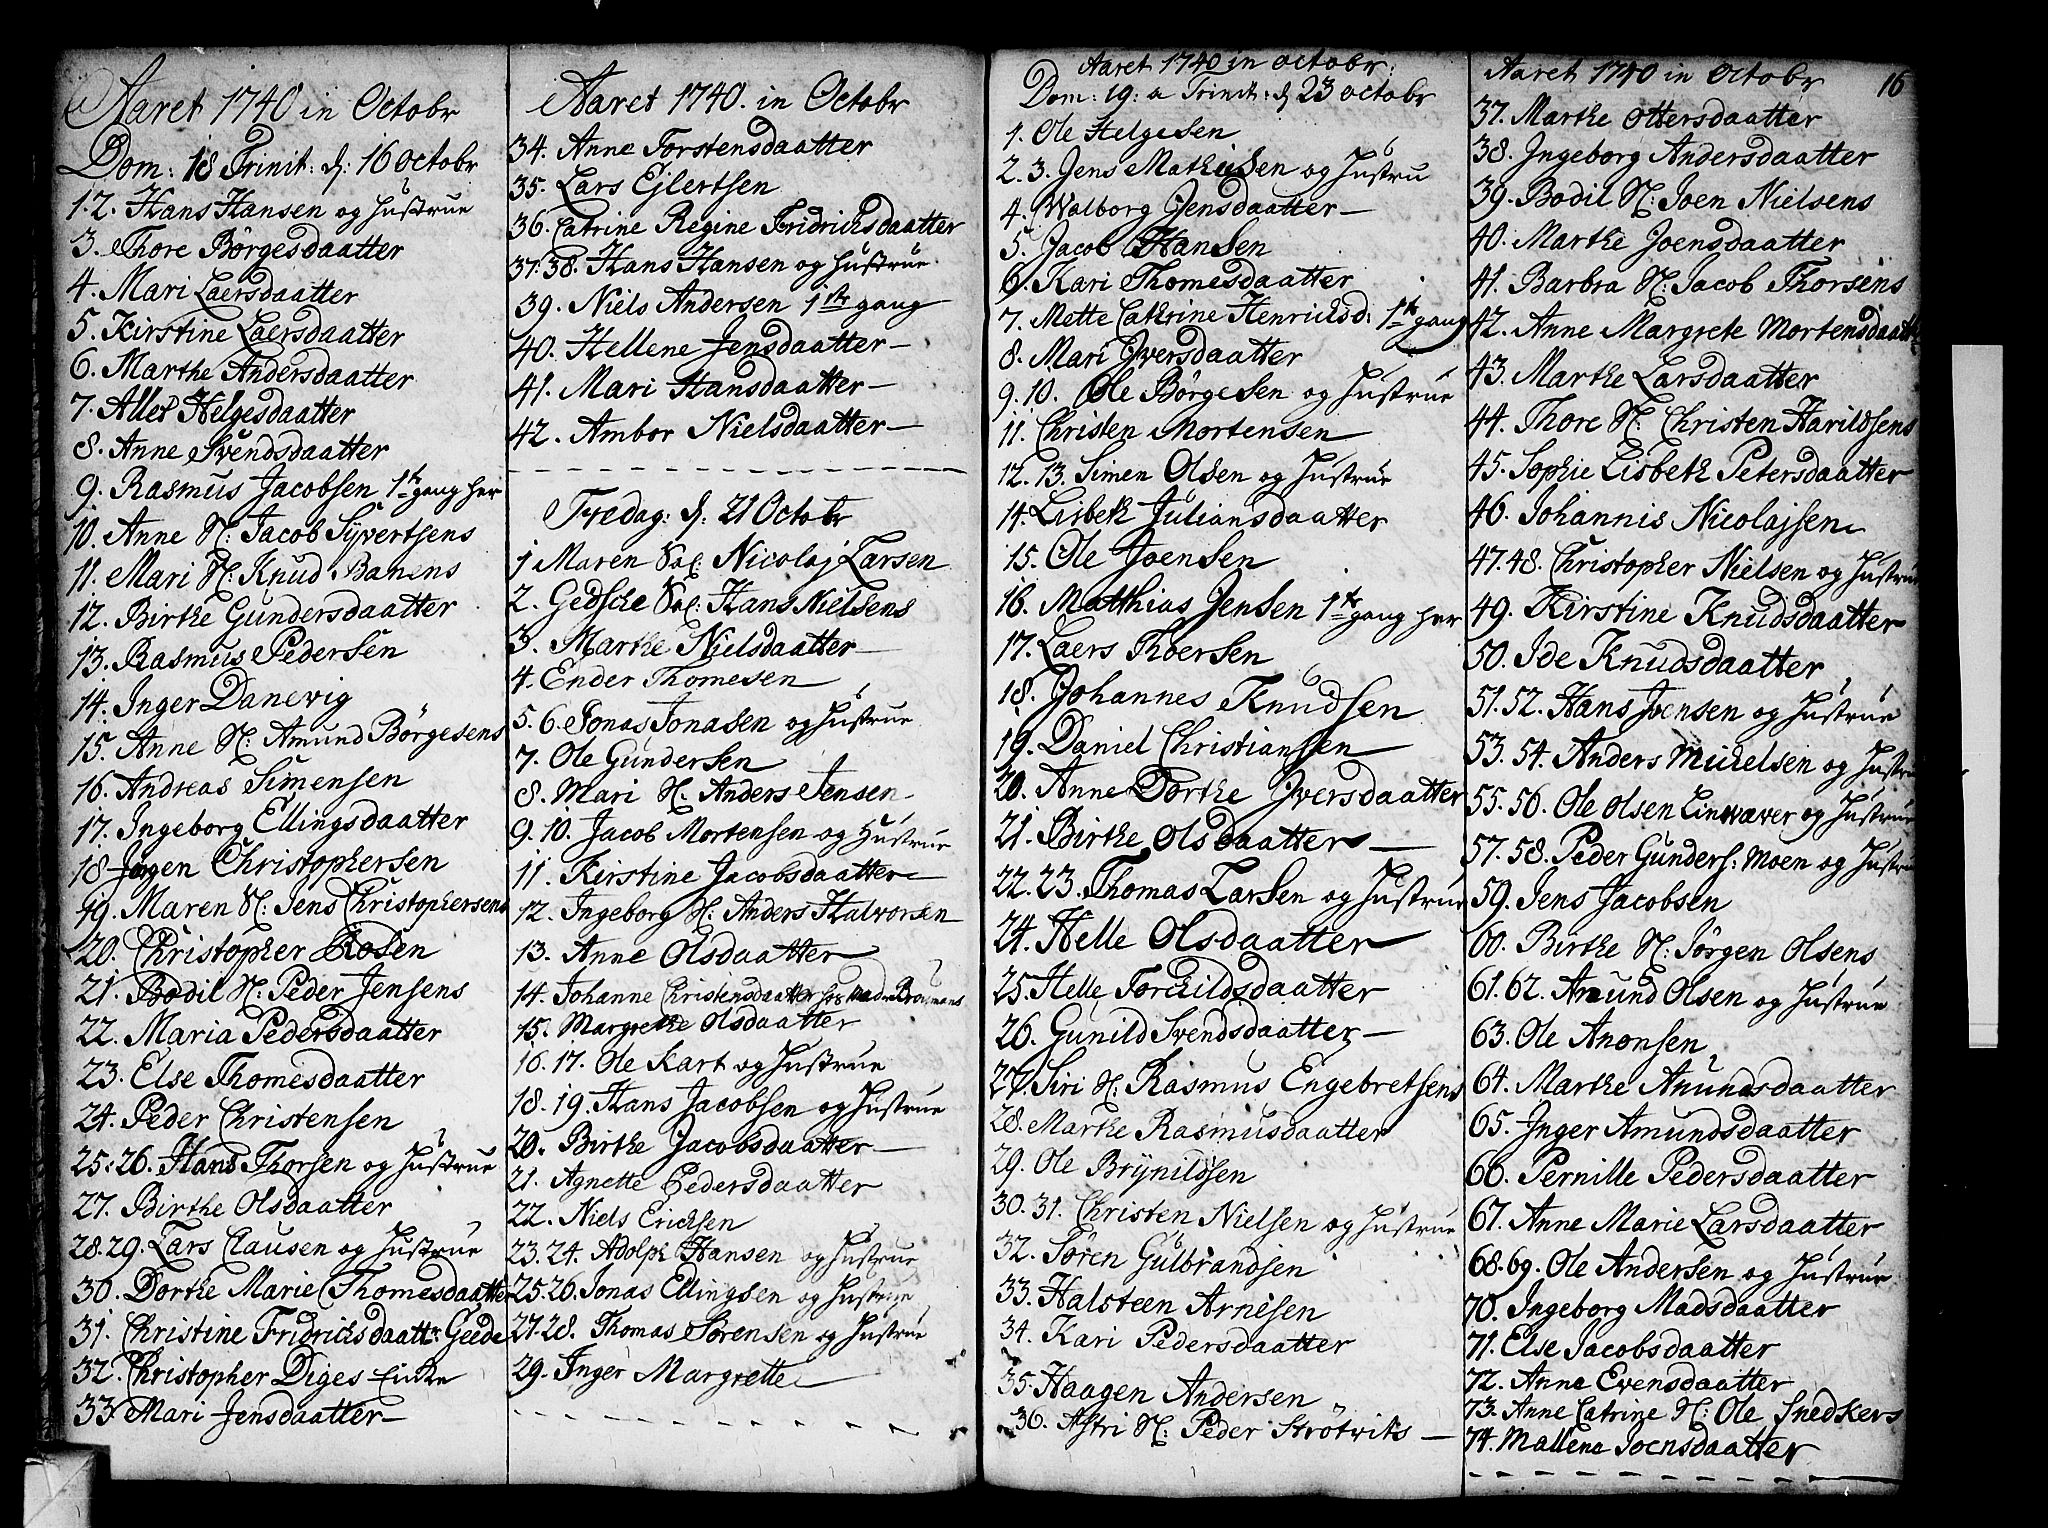 Aaret 1740 in Octobr
Dom: 18 Trinit: d: 16 octobr
1.2. Hans Hansen og Hustrue
3. Thore Börgesdaatter
4. Mari Laersdaatter
5. Kirstine Laersdaatter
6. Marthe Andersdaatter
7. Allet Helgesdaatter
8. Anne Svendsdaatter
9. Rasmus Jacobsen 1ste gang her
10. Anne H: Jacob Syvertsens
11. Mari H: Knud Banens
12. Birthe Gundersdaatter
13. Rasmus Pedersen
14. Inger Danevig
15. Anne H: Amund Börgesens
16. Andreas Simensen
17. Ingeborg Ellingsdaatter
18 Jörgen Christophersen
19. Maren H: Jens Christophersens
20. Christopher Rosen
21. Bodil H: Peder Jensens
22. Maria Pedersdaatter
23. Else Thomesdaatter
24. Peder Christensen
25.26. Hans Thorsen og Hustrue
27. Birthe Olsdaatter
28.29. Lars Clausen og Hustrue
30. Dorthe Marie Thomesdaatter
31. Christine Fridrichsdaatt: Geede
32. Christopher Diges Enke
33 Mari Jensdaatter
Aaret 1740. in Octobr
34. Anne Torstensdaatter
35. Lars Ejlertsen
36. Catrine Regine Fridrichsdaatter
37.38. Hans Hansen og Hustrue
39. Niels Andersen 1ste gang
40. Hellene Jensdaatter
41. Mari Hansdaatter
42. Ambor Nielsdaatter
Fredag: d: 21 Octobr
1 Maren Sal: Nicolaj Larsen
2. Gedsche Sal: Hans Nielsens
3. Marthe Nielsdaatter
4. Ender Thomesen
5.6. Jonas Jonasen og Hustrue
7. Ole Gundersen
8. Mari H: Anders Jensen
9.10. Jacob Mortensen og Hustrue
11. Kirstine Jacobsdaatter
12. Ingeborg H: Anders Halvorsen
13. Anne Olsdaatter
14. Johanne Christensdaatter hos Mad:
15. Margrethe Olsdaatter
16.17. Ole Kart og Hustrue
18.19. Hans Jacobsen og Hustrue
20. Birthe Jacobsdaatter
21. Agnette Pedersdaatter
22. Niels Ericksen
23.24. Adolph Hansen og Hustrue
25.26. Jonas Ellingsen og Hustrue
27.28. Thomas Sörensen og Hustrue
29. Inger Margrette
Aaret 1740 in octobr:
Dom: 19: a Trinit: d 23 octobr
1. Ole Helgesen
2.3. Jens Mathisen og Hustru
4. Walborg Jensdaatter
5. Jacob Hansen
6. Kari Thomesdaatter
7. Mette Cathrine Henrichsd: 1ste gang
8. Mari Iversdaatter
9.10. Ole Börgesen og Hustrue
11. Christen Mortensen
12.13. Simen Olsen og Hustrue
14. Lisbeth Juliansdaatter
15. Ole Joensen
16. Matthias Jensen 1ste gang her
17. Laers Thoersen
18. Johannes Knudsen
19. Daniel Christiansen
20. Anne Dorthe Iversdaatter
21. Birthe Olsdaatter
22.23. Thomas Larsen og Hustrue
24. Helle Olsdaatter
25. Helle Torchildsdaatter
26. Gunild Svendsdaatter
27. Siri H: Rasmus Engebretsens
28. Marthe Rasmusdaatter
29. Ole Brynildsen
30.31. Christen Nielsen og Hustrue
32. Sören Gulbrandsen
33. Halsteen Arnesen
34. Kari Pedersdaatter
35. Haagen Andersen
36. Astri H: Peder Strötviks
Aaret 1740 in Octobr 16
37. Marthe Ottersdaatter
38. Ingeborg Andersdaatter
39. Bodil H: Joen Nielsens
40. Marthe Joensdaatter
41. Barbra H: Jacob Thorsens
42. Anne Margrete Mortensdaatter
43. Marthe Larsdaatter
44. Thore H: Christen Harildsens
45. Sophie Lisbeth Petersdaatter
46. Johannis Nicolajsen
47.48. Christopher Nielsen og Hustrue
49. Kirstine Knudsdaatter
50. Ide Knudsdaatter
51.52. Hans Ivensen og Hustrue
53.54. Anders Michelsen og Hustrue
55.56. Ole Olsen Linwæver og Hustrue
57.58. Peder Gunders: Moen og Hustrue
59. Jens Jacobsen
60. Birthe H: Jörgen Olsens
61.62. Amund Olsen og Hustrue
63. Ole Anonsen
64. Marthe Anundsdaatter
65. Inger Amundsdaatter
66. Pernille Pedersdaatter
67. Anne Marie Larsdaatter
68.69. Ole Andersen og Hustrue
70. Ingeborg Madsdaatter
71. Else Jacobsdaatter
72. Anne Evensdaatter
73. Anne Catrine H: Ole Snedkers
74. Mallene Joensdaatter